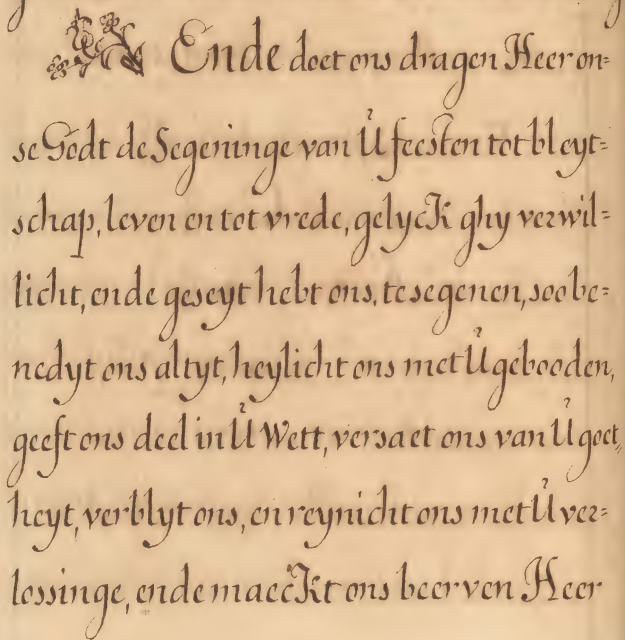 Ende doet ons dragen Heer on=
se Godt de Segeninge van U feesten tot bleyt=
schap, leven en tot vrede, gelyck ghy verwil=
licht, ende geseyt hebt ons, te segenen, soo be=
nedyt ons altyt, heylicht ons met U gebooden,
geeft ons deel in U Wett, versaet ons van U goet,,
heyt, verblyt ons, en reynicht ons met U ver=
lossinge, ende maeckt ons beerven Heer